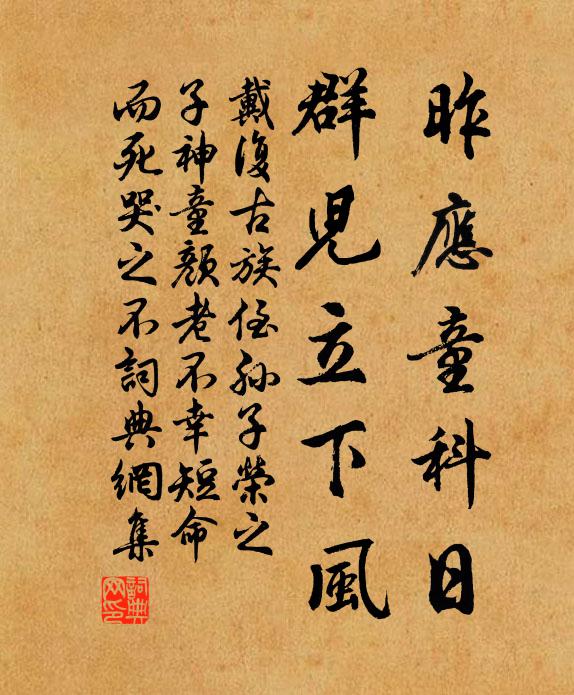 昨應童科日
群児立下風
戴復古族侄孫子榮之
子神童顏老不幸短命
而死哭之不詞典網集
詞典網印